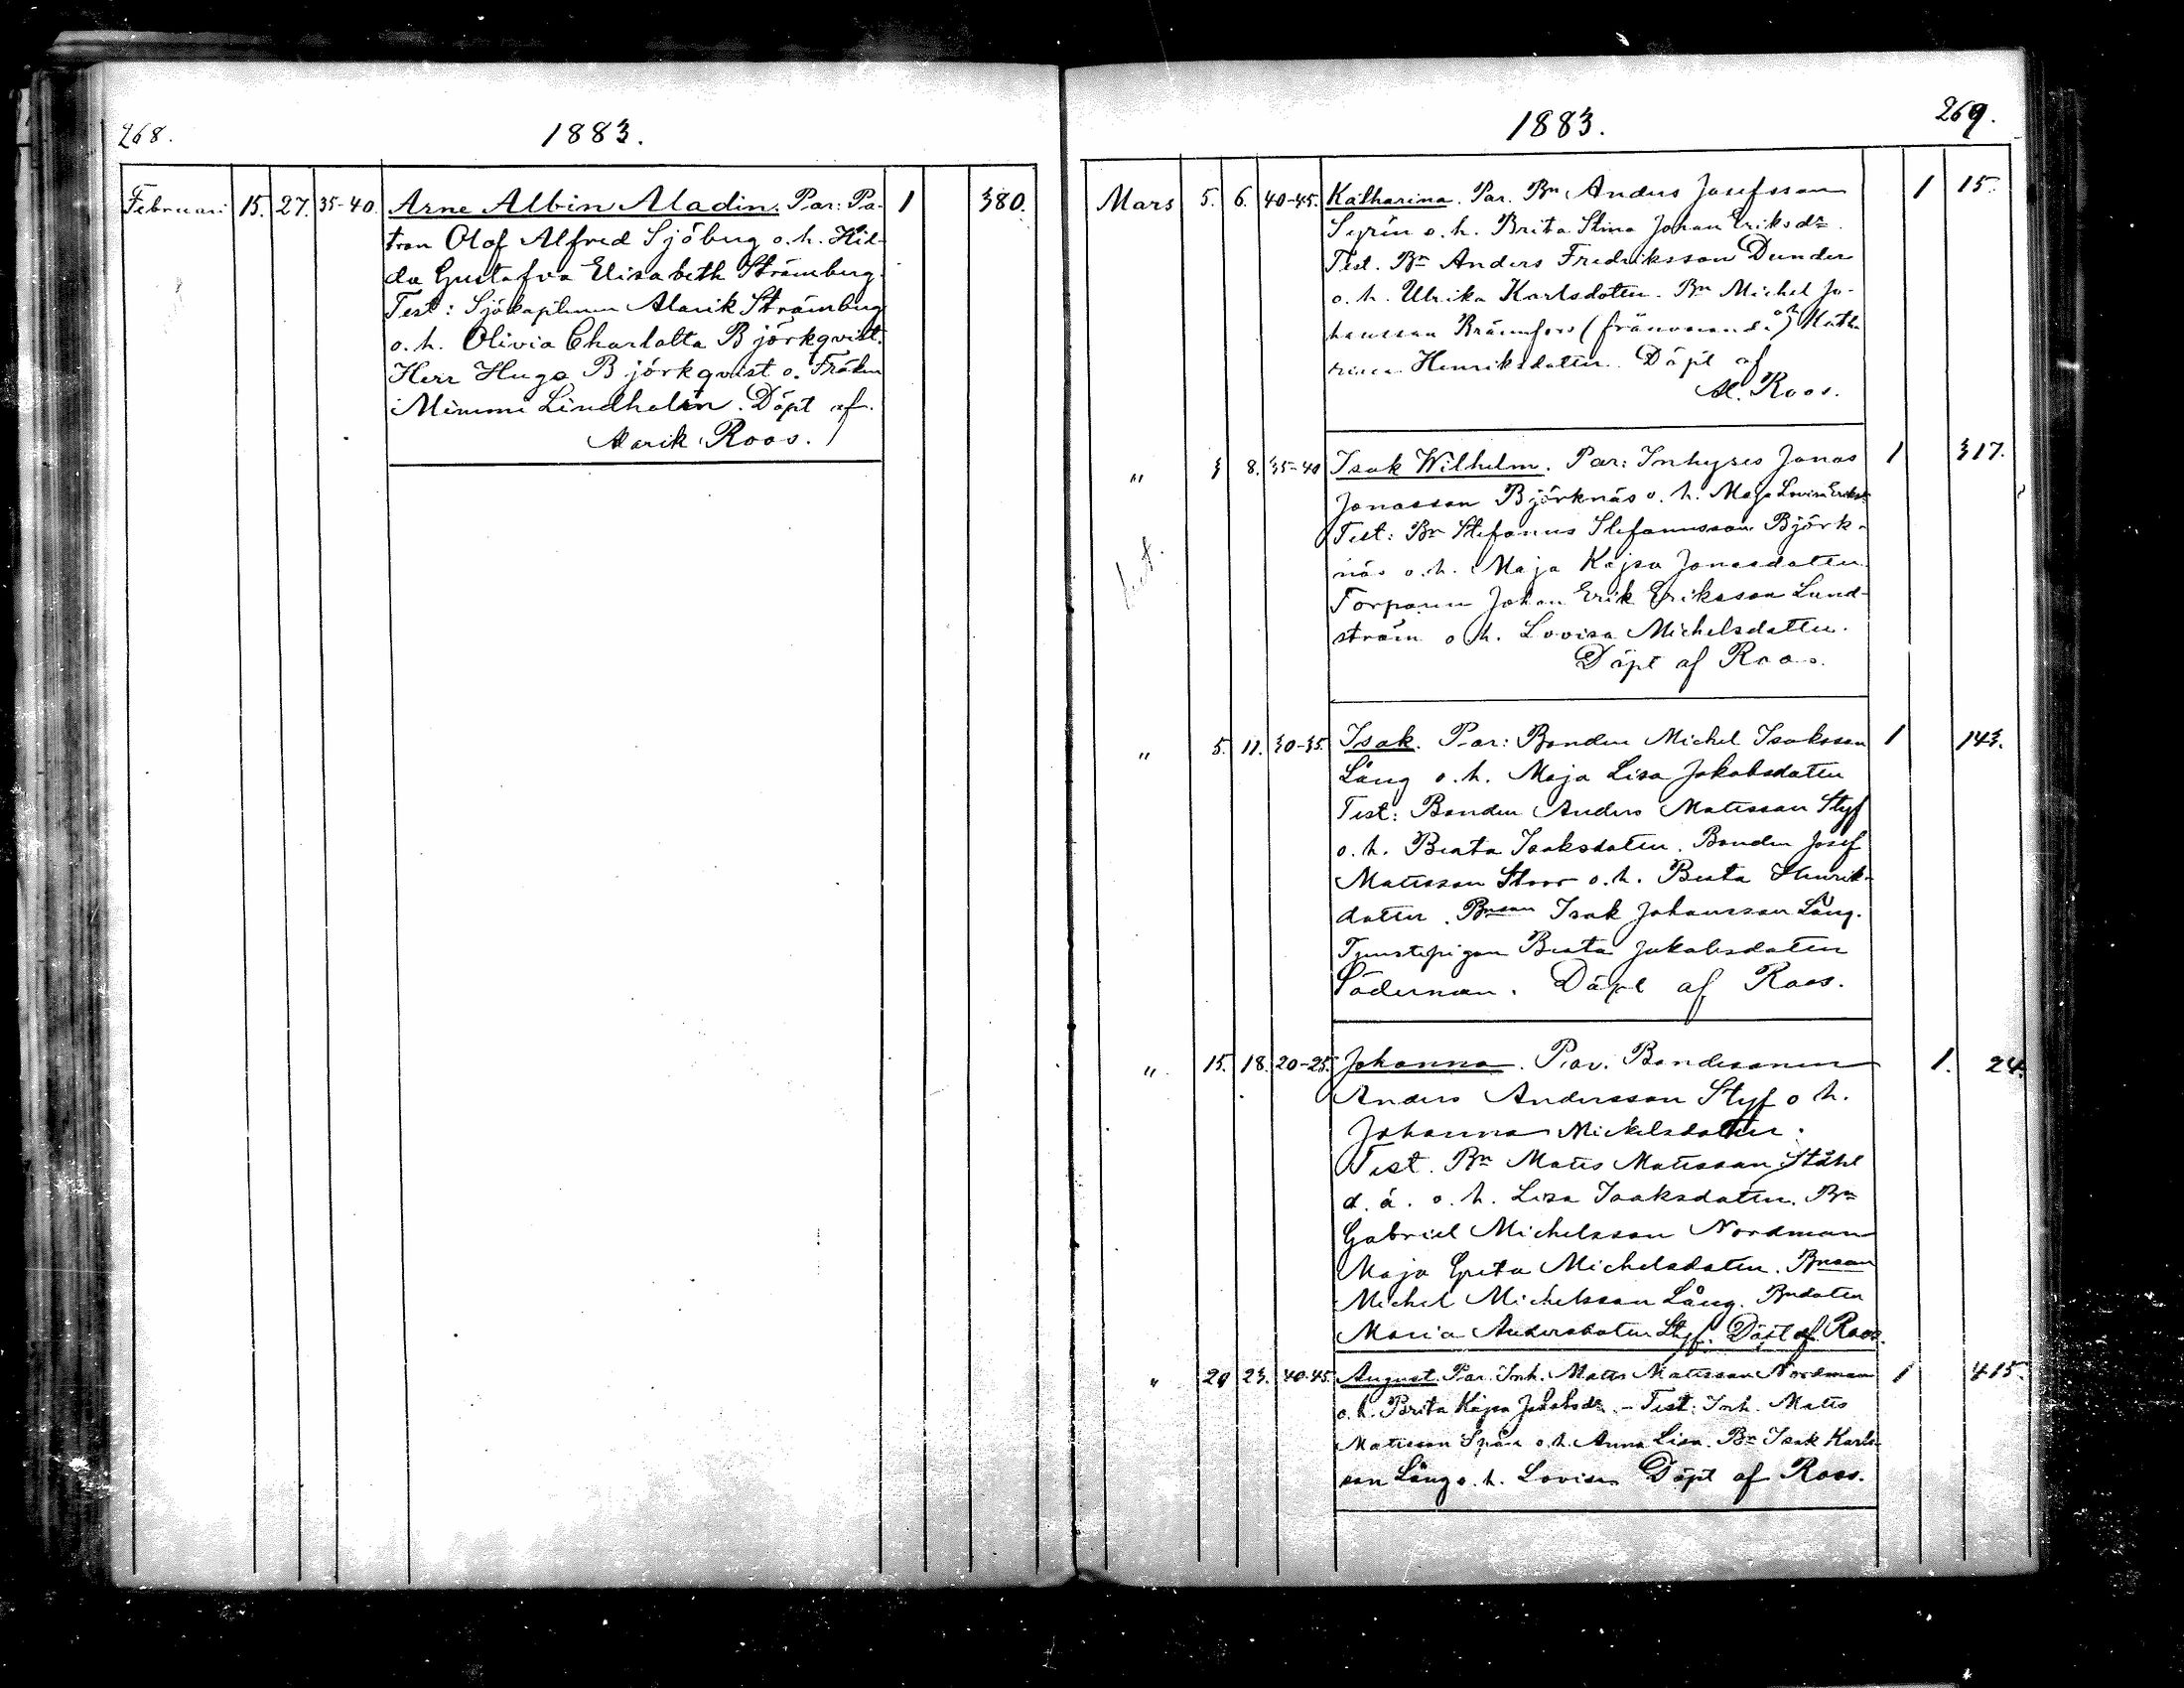 268.
1883.
Februari 15. 27. 35-40. Arne Albin Aladin. Par: Pa- 1 380.
tron Olof Alfred Sjöberg o. h. Hil-
da Gustafva Elisabeth Strömberg.
Test: Sjökaptenen Alarik Strömberg
o. h. Olivia Charlotta Björkqvist.
Herr Hugo Björkqvist o. Fröken
Mimmi Lindholm. Döpt af
Alarik Roos.
1883.
269.
Mars 5. 6. 40-45. Katharina. Par. Bn Anders Josefsson 1 15.
Syrén o. h. Brita Stina Johan Eriksdr.
Test. Bn Anders Fredriksson Dunder
o. h. Ulrika Karlsdotter. Bn Michel Jo-
hansson Brännfors (frånvarande) Katha
rina Henriksdotter. Döpt af
Al. Roos.
" 3 8. 35-40 Isak Wilhelm. Par: Inhyses Jonas 1 317.
Jonasson Björknäs o. h. Maja Lovisa Eriksdr
Test: Bn Stefanus Stefanusson Björk-
näs o. h. Maja Kajsa Jonasdotter.
Torparen Johan Erik Eriksson Lund-
ström o. h. Lovisa Michelsdotter.
Döpt af Roos.
" 5. 11. 30-35. Isak. Par: Bonden Michel Isaksson 1 143.
Lång o. h. Maja Lisa Jakobsdotter
Test: Bonden Anders Matsson Styf
o. h. Beata Isaksdotter. Bonden Josef
Matsson Stoor o. h. Beata Henriks-
dotter. Bnson Isak Johansson Lång.
Tjenstepigan Beata Jakobsdotter
Söderman. Döpt af Roos.
" 15. 18. 20-25. Johanna. Par. Bondesonen 1. 24.
Anders Andersson Styf o h.
Johanna Mickelsdotter.
Test. Bn Mats Matsson Ståhl
d. ä. o. h. Lisa Isaksdotter. Bn
Gabriel Michelsson Nordman
Maja Greta Michelsdotter. Bnson
Michel Michelsson Lång. Bndotter
Maria Andersdotter Styf. Döpt af Roos.
" 20 23. 40-45. August. Par. Inh. Mats Matsson Nordman 1 415.
o. h. Brita Kajsa Jakobsdr. - Test: Inh. Mats
Matsson Spåre o. h. Anna Lisa. Bn Isak Karls-
son Lång o. h. Lovisa. Döpt af Roos.